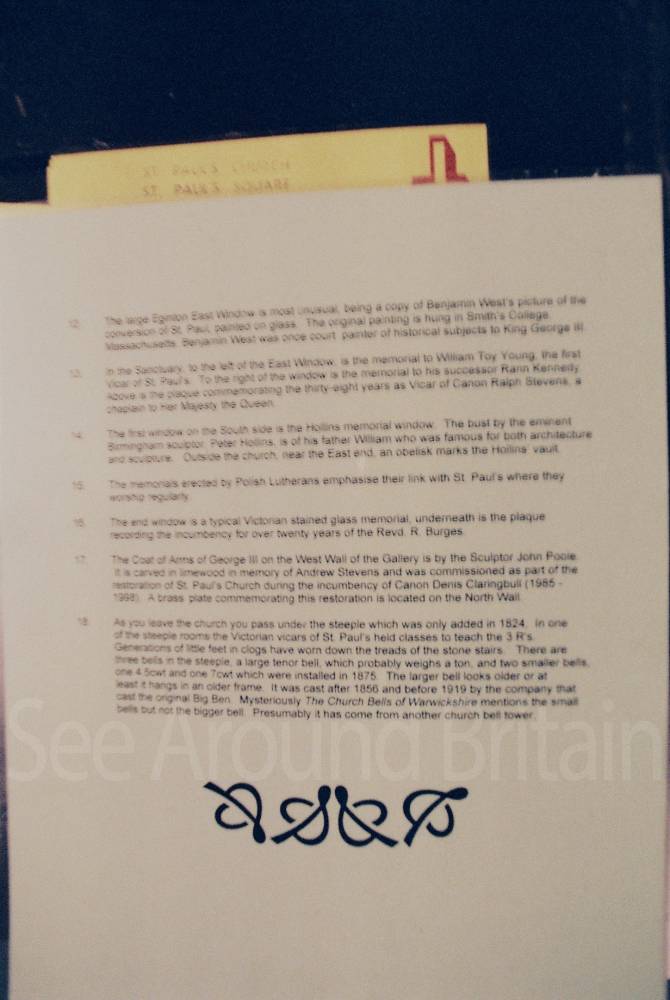 ST. PAUL'S CHURCH
ST. PAUL'S SQUARE
12. The large Eginton East Window is most unusual, being a copy of Benjamin West's picture of the
conversion of St. Paul, painted on glass. The original painting is hung in Smith's College,
Massachusetts. Benjamin West was once court painter of historical subjects to King George III.
13. In the Sanctuary, to the left of the East Window, is the memorial to William Toy Young, the first
Vicar of St. Paul's. To the right of the window is the memorial to his successor Rann Kennedy.
Above is the plaque commemorating the thirty-eight years as Vicar of Canon Ralph Stevens, a
chaplain to Her Majesty the Queen.
14. The first window on the South side is the Hollins memorial window. The bust by the eminent
Birmingham sculptor, Peter Hollins, is of his father William who was famous for both architecture
and sculpture. Outside the church, near the East end, an obelisk marks the Hollins' vault.
15. The memorials erected by Polish Lutherans emphasise their link with St. Paul's where they
worship regularly.
16. The end window is a typical Victorian stained glass memorial, underneath is the plaque
recording the incumbency for over twenty years of the Revd. R. Burges.
17. The Coat of Arms of George III on the West Wall of the Gallery is by the Sculptor John Poole.
It is carved in limewood in memory of Andrew Stevens and was commissioned as part of the
restoration of St. Paul's Church during the incumbency of Canon Denis Claringbull (1985 -
1998). A brass plate commemorating this restoration is located on the North Wall.
18. As you leave the church you pass under the steeple which was only added in 1824. In one
of the steeple rooms the Victorian vicars of St. Paul's held classes to teach the 3 R's.
Generations of little feet in clogs have worn down the treads of the stone stairs. There are
three bells in the steeple, a large tenor bell, which probably weighs a ton, and two smaller bells,
one 4.5cwt and one 7cwt which were installed in 1875. The larger bell looks older or at
least it hangs in an older frame. It was cast after 1856 and before 1919 by the company that
cast the original Big Ben. Mysteriously The Church Bells of Warwickshire mentions the small
bells but not the bigger bell. Presumably it has come from another church bell tower.
See Around Britain